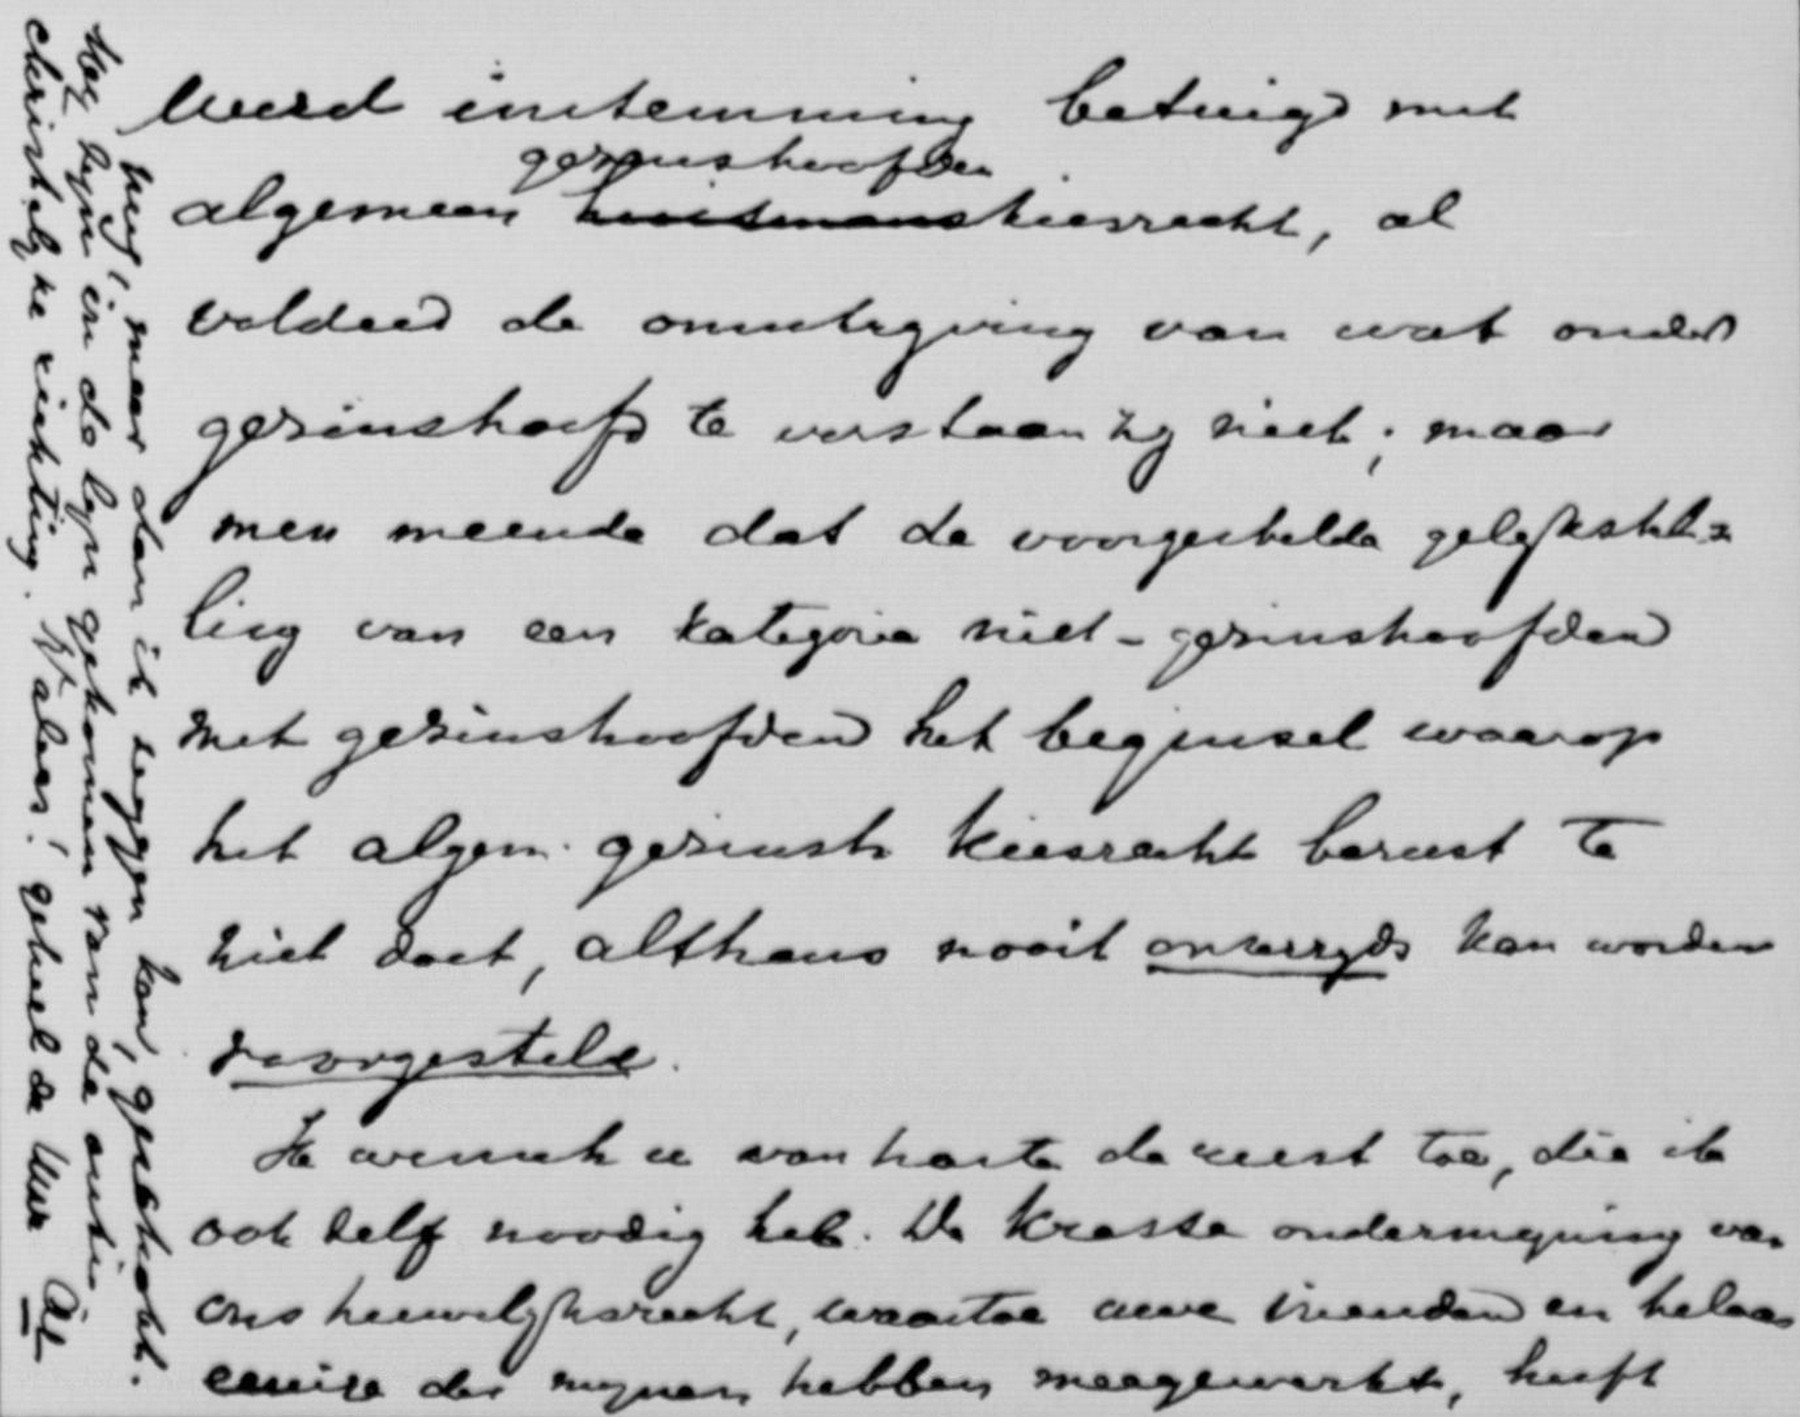 werd instemming betuigd met
gezinshoofden
algemeen huismanskiesrecht, al
voldeed de omschrijving van wat onder
gezinshoofd te verstaan zij niet; maar
men meende dat de voorgestelde gelijkstel=
ling van een kategorie niet-gezinshoofden
met gezinshoofden het beginsel waarop
het algem. gezinsh kiesrecht berust te
niet doet, althans nooit onzerzijds kan worden
voorgesteld.
Ik wensch u van harte de rust toe, die ik
ook zelf noodig heb. De krasse ondermijning van
ons huwelijksrecht, waartoe uwe vrienden en helaas
eenige der mijnen hebben meegewerkt, heeft
mij, meer dan ik zeggen kan, geschokt.
Mog hijn in de lijn gekomen van de anti-
christelijke richting. N' alas! geheel de Uwe